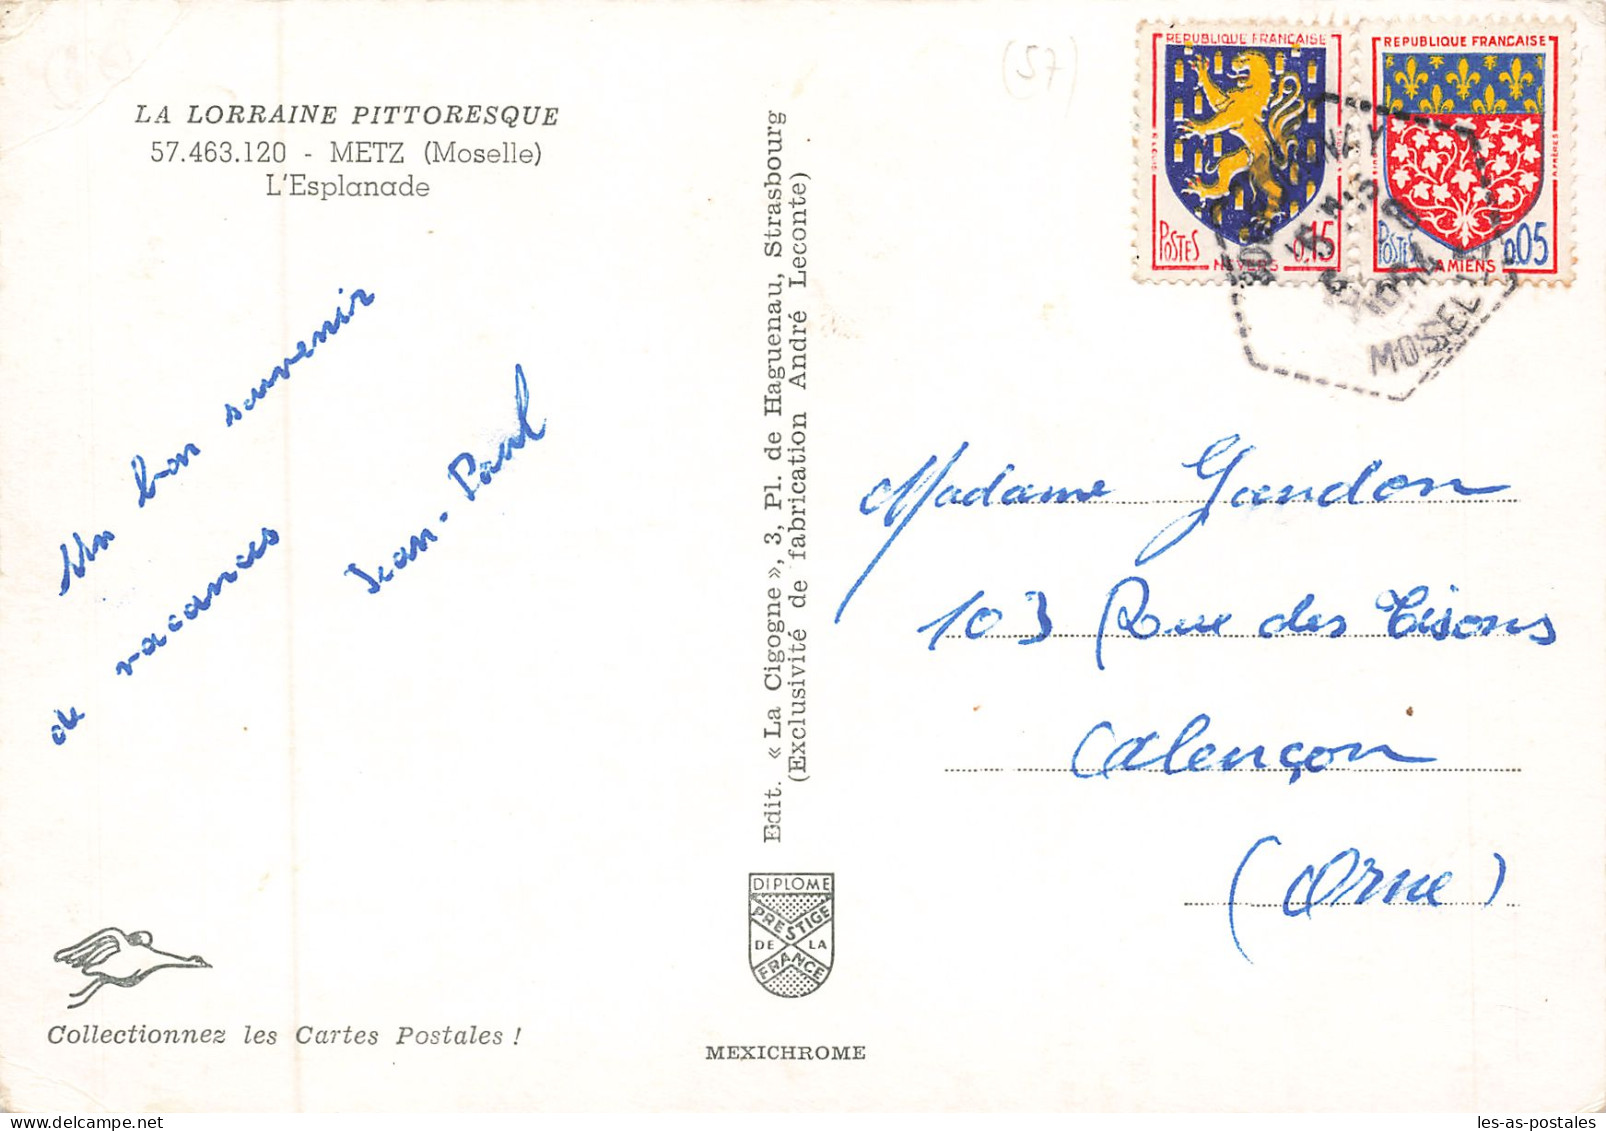 LA LORRAINE PITTORESQUE
57.463.120 - METZ (Moselle)
L'Esplanade
Un bon souvenir
de vacances
Jean-Paul
Collectionnez les Cartes Postales !
Edit. « La Cigogne », 3, Pl. de Haguenau, Strasbourg
(Exclusivité de fabrication André Leconte)
DIPLOME
PRESTIGE
DE LA
FRANCE
MEXICHROME
(57)
REPUBLIQUE FRANÇAISE
POSTES 0.15
NEVERS
REPUBLIQUE FRANÇAISE
POSTES 0.05
AMIENS
MOSELLE
Madame Gandon
103 Rue des Tisons
Alençon
(Orne)
les-as-postales